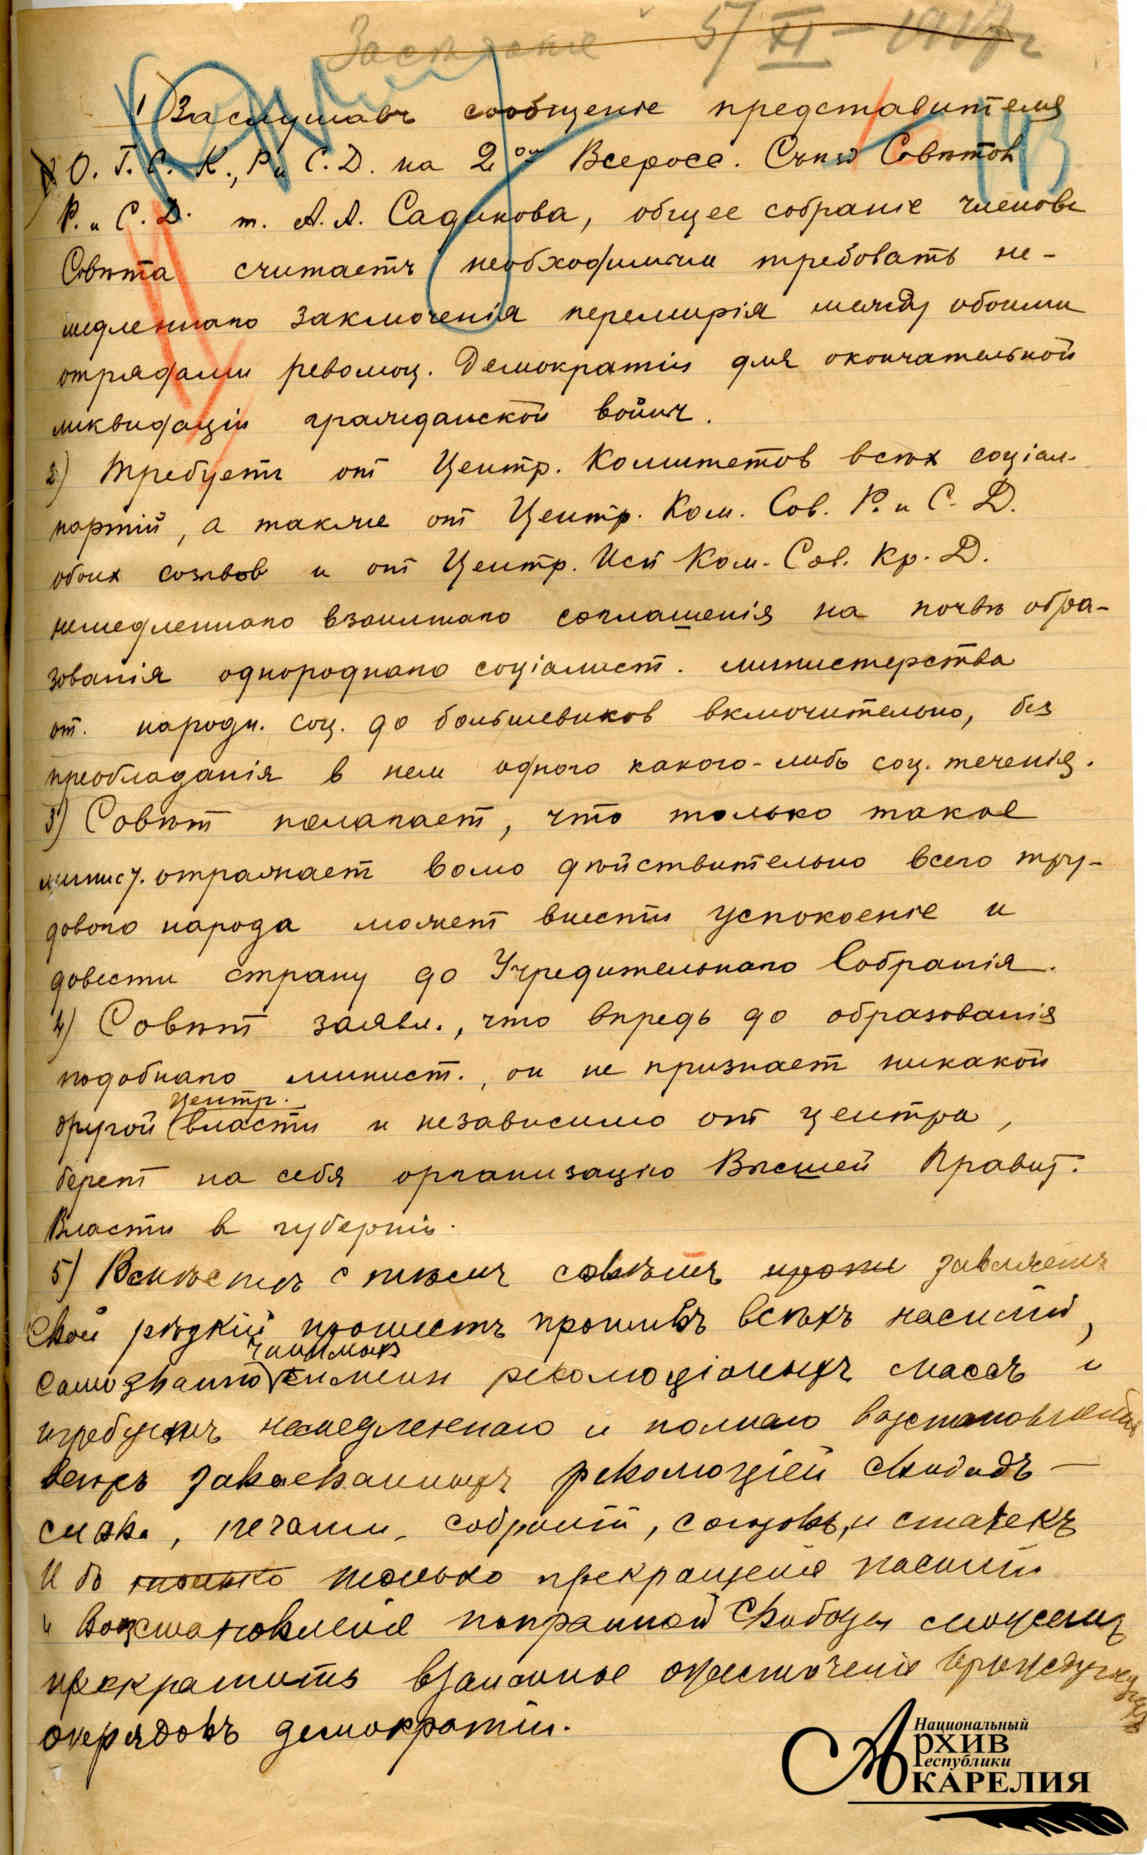 Заседание 5/XI – 1917 г
1) Заслушавъ сообщенiе представителя
О. Г. С. К., Р. и С. Д. на 2ом Всеросс. Съѣзд Совѣтов
Р. и С. Д. т. А. А. Садикова, общее собранiе членовъ
Совѣта считаетъ необходимым требовать не-
медленнаго заключенiя перемирiя между обоими
отрядами революц. Демократiи для окончательной
ликвидацiи гражданской войны.
2) Требуетъ от Центр. Комитетов всѣх соцiал.
партiй, а также от Центр. Ком. Сов. Р. и С. Д.
обоих созывов и от Центр. Исп Ком. Сов. Кр. Д.
немедленнаго взаимнаго соглашенiя на почвѣ обра-
зованiя однороднаго соцiалист. министерства
от. народн. соц. до большевиков включительно, без
преобладанiя в нем одного какого-либо соц. теченiя.
3) Совѣт полагает, что только такое
минист. отражает волю дѣйствительно всего тру-
дового народа может внести успокоенiе и
довести страну до Учредительнаго Собранiя.
4) Совѣт заявл., что впредь до образованiя
подобнаго минист., он не признает никакой
центр.
другой власти и независимо от центра,
берет на себя организацiю Высшей Правит.
Власти в губернiи.
5) Вмѣстѣ с тѣмъ совѣтъ заявляетъ
свой рѣзкiй протестъ противъ всѣхъ насилiй,
чинимых
самозванно именем революцiонныхъ массъ и
требуетъ немедленнаго и полнаго возстановленiя
всѣхъ завоеванныхъ революцiей свободъ –
слова, печати, собранiй, союзовъ, и стачекъ
И бо только только прекращенiе насилiй
и возстановленiе попранной свободы можетъ
прекратить взаимное ожесточенiе
отрядовъ демократiи.
Национальный
Архив
Республики
Карелия